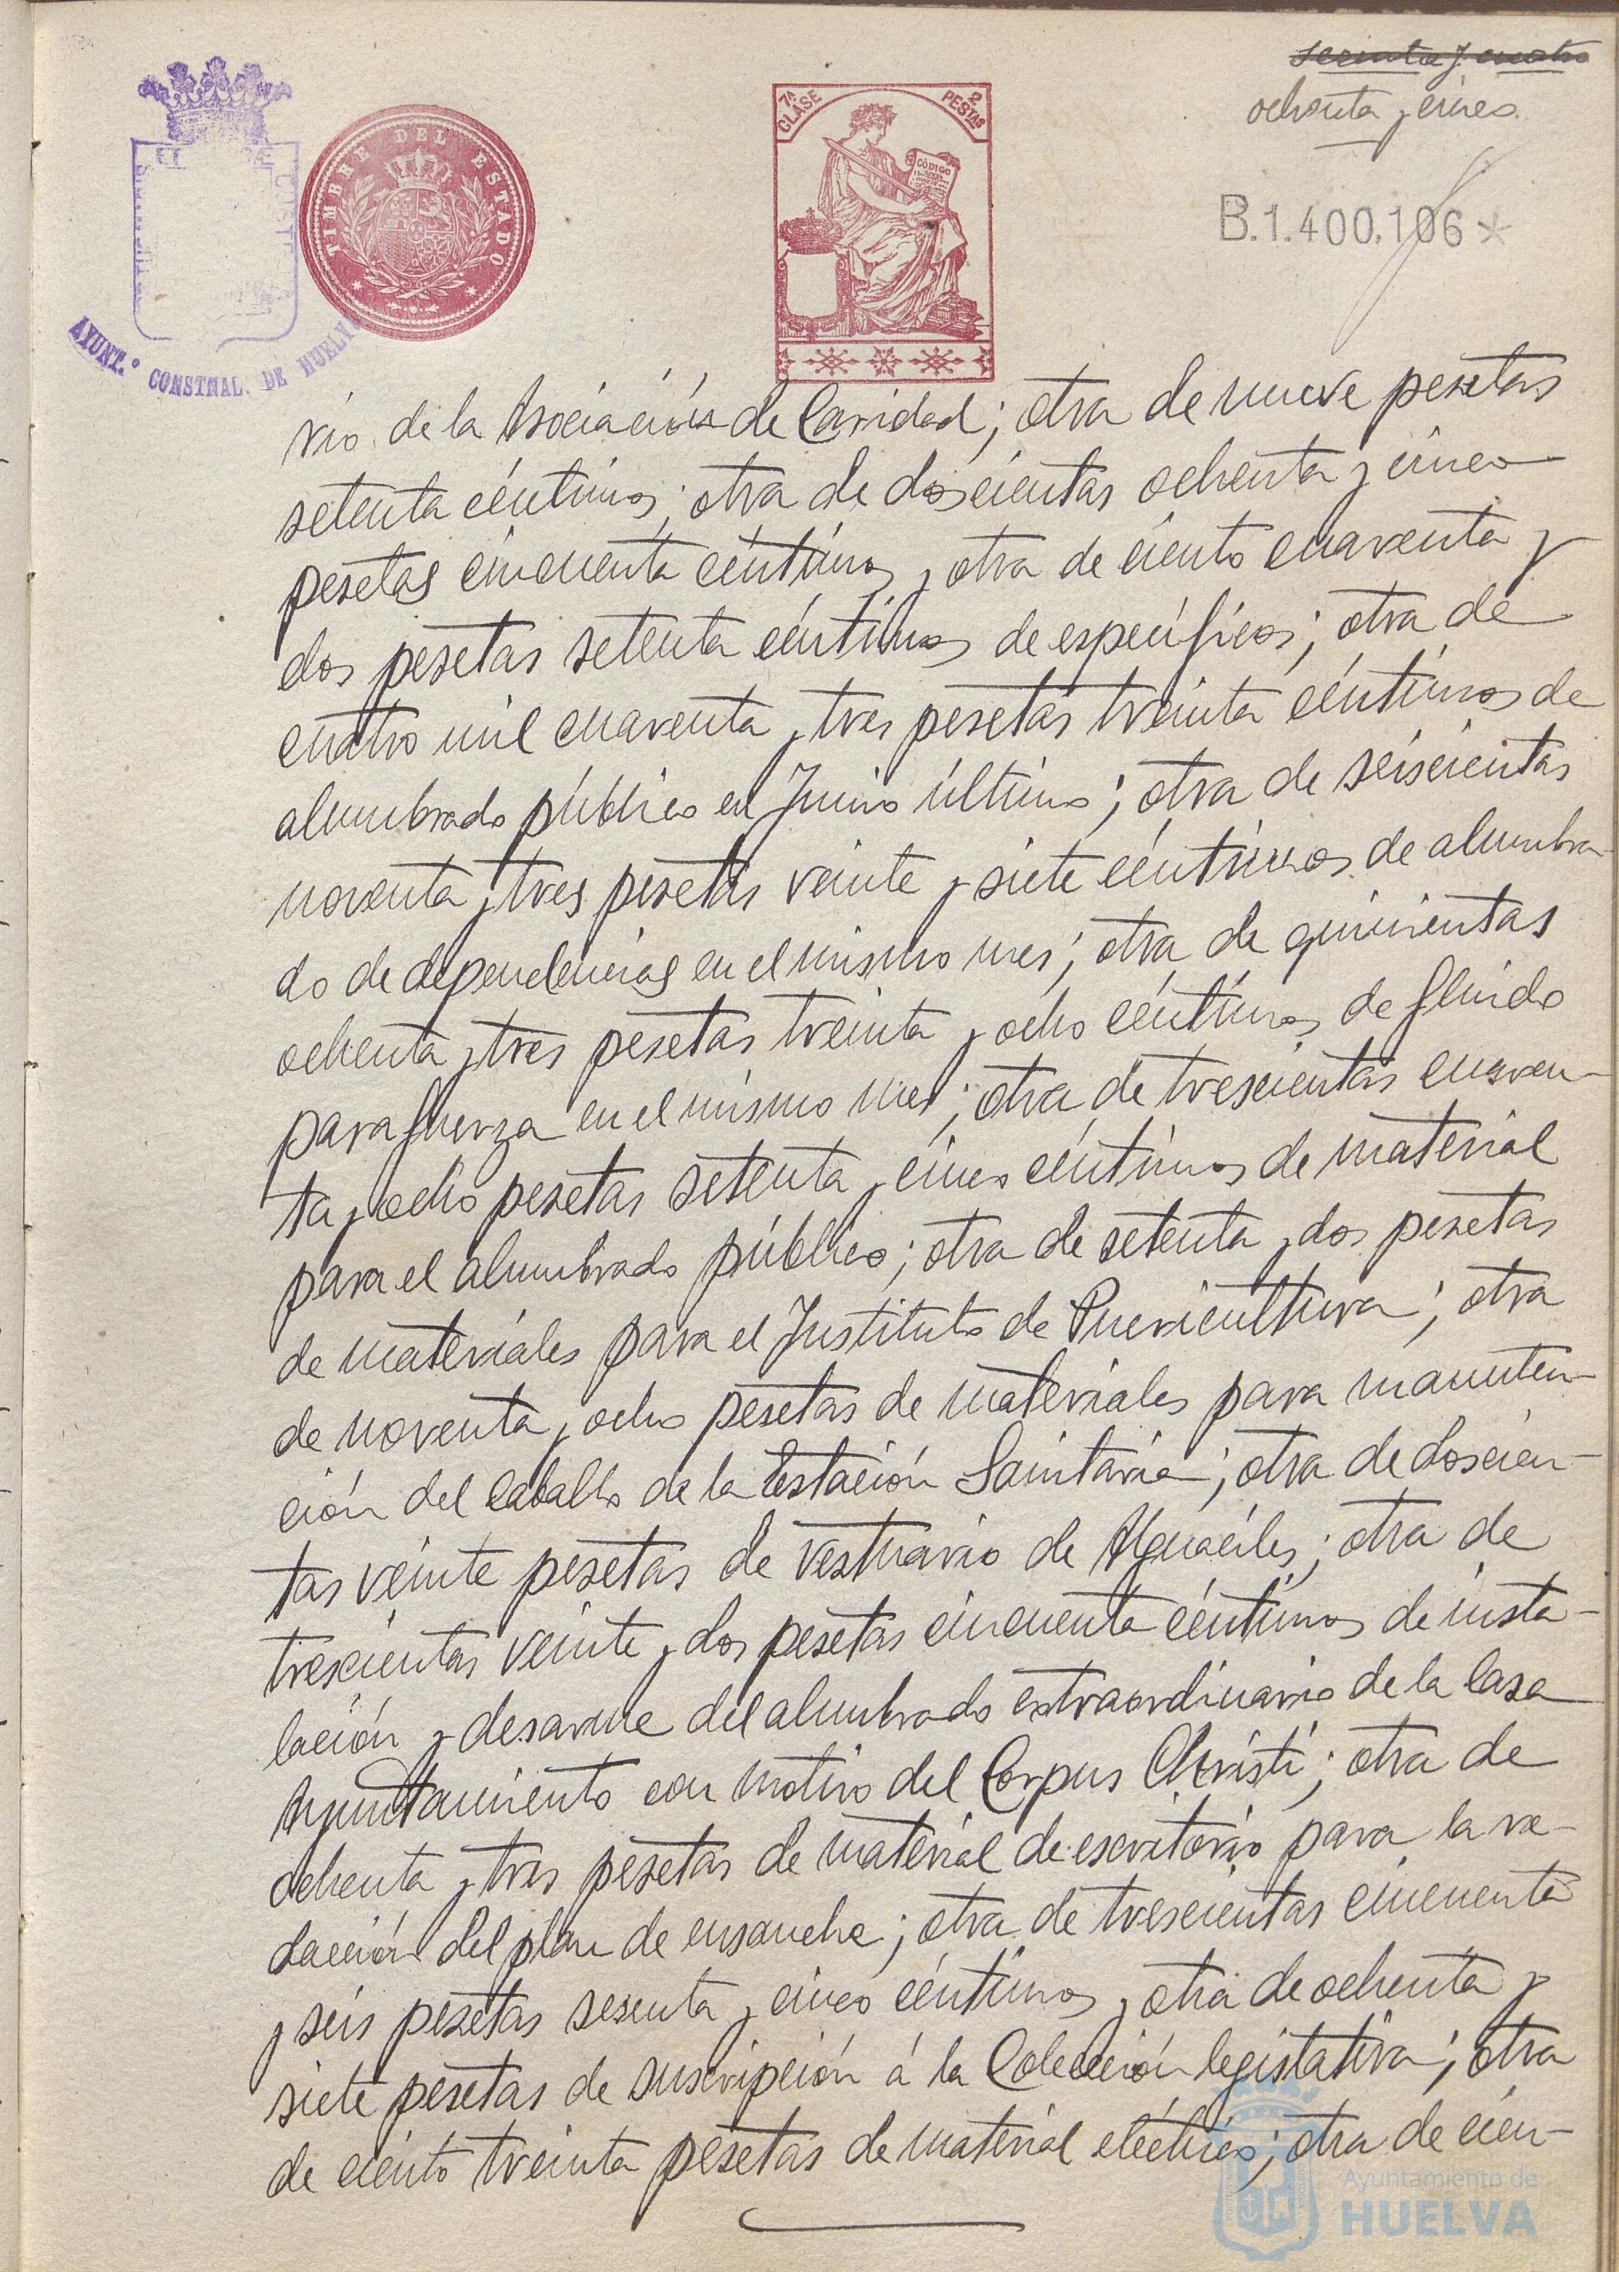 sesenta y cuatro
ochenta y cinco.
TIMBRE DEL ESTADO
7ª CLASE
2 PESETAS
CÓDIGO
B.1.400.106*
AYUNT.º CONSTNAL. DE HUELVA
rio de la Asociación de Caridad; otra de nueve pesetas
setenta céntimos; otra de doscientas ochenta y cinco
pesetas cincuenta céntimos y otra de ciento cuarenta y
dos pesetas setenta céntimos de específicos; otra de
cuatro mil cuarenta y tres pesetas treinta céntimos de
alumbrado público en Junio último; otra de seiscientas
noventa y tres pesetas veinte y siete céntimos de alumbra-
do de dependencias en el mismo mes; otra de quinientas
ochenta y tres pesetas treinta y ocho céntimos de fluido
para fuerza en el mismo mes; otra de trescientas cuaren-
ta y ocho pesetas setenta y cinco céntimos de material
para el alumbrado público; otra de setenta y dos pesetas
de materiales para el Instituto de Puericultura; otra
de noventa y ocho pesetas de materiales para manuten-
ción del caballo de la Estación Sanitaria; otra de doscien-
tas veinte pesetas de vestuario de Alguaciles; otra de
trescientas veinte y dos pesetas cincuenta céntimos de insta-
lación y desarme del alumbrado extraordinario de la Casa
Ayuntamiento con motivo del Corpus Christi; otra de
ochenta y tres pesetas de material de escritorio para la re-
dacción del plan de ensanche; otra de trescientas cincuenta
y seis pesetas sesenta y cinco céntimos y otra de ochenta y
siete pesetas de suscripción á la Colección legislativa; otra
de ciento treinta pesetas de material eléctrico; otra de cien-
Ayuntamiento de
HUELVA